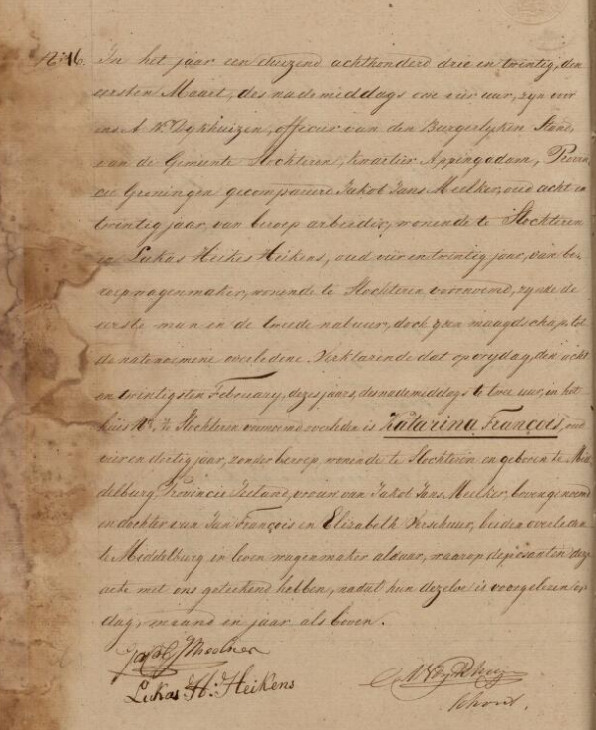 No. 16. In het jaar een duizend achthonderd drie en twintig, den
eersten Maart, des nademiddags om vier uur, zyn voor
ons A. W. Dykhuizen, officier van den Burgerlyken Stand,
van de Gemeente Slochteren, kwartier Appingadam, Provin
cie Groningen gecompareerd Jakob Jans Meelker, oud acht en
twintig jaar, van beroep arbeider, wonende te Slochteren
en Lukas Heikes Heikens, oud vier en twintig jaar, van be-
roep wagenmaker, wonende te Slochteren voornoemd, zynde de
eerste man en de tweede nabuur, doch geen maagdschap tot
de natenoemene overledene. Verklarende dat op vrydag, den acht
en twintigsten February, dezes jaars, des nademiddags te twee uur, in het
huis No. te Slochteren voornoemd overleden is Katarina François, oud
vier en dertig jaar, zonder beroep, wonende te Slochteren en geboren te Mid
delburg, Provincie Zeeland, vrouw van Jakob Jans Meelker, bovengenoemd
en dochter van Jan François en Elizabeth Verschuur, beiden overleden
te Middelburg in leven wagenmaker aldaar, waarop de comparanten deze
acte met ons geteekend hebben, nadat hun dezelve is voorgelezen op
dag, maand en jaar als boven.
Lukas H. Heikens
A W Dykhuizen
Schout.